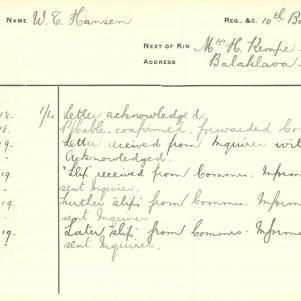 NAME W. E. Hansen REG., &C. 10th Ba
NEXT OF KIN Mrs H. Kempe
ADDRESS Balaklava
18. 1/L Letter acknowledged
18. P/Cable confirmed forwarded Co
19. Letter received from Inquirer wit
" Acknowledged.
19. "Slip" received from Commrs. Inform
" sent Inquirer.
19 Further "slip" from Commrs. Informa
sent Inquirer
19. Later "slip" from Commrs. Informa
sent Inquirer.